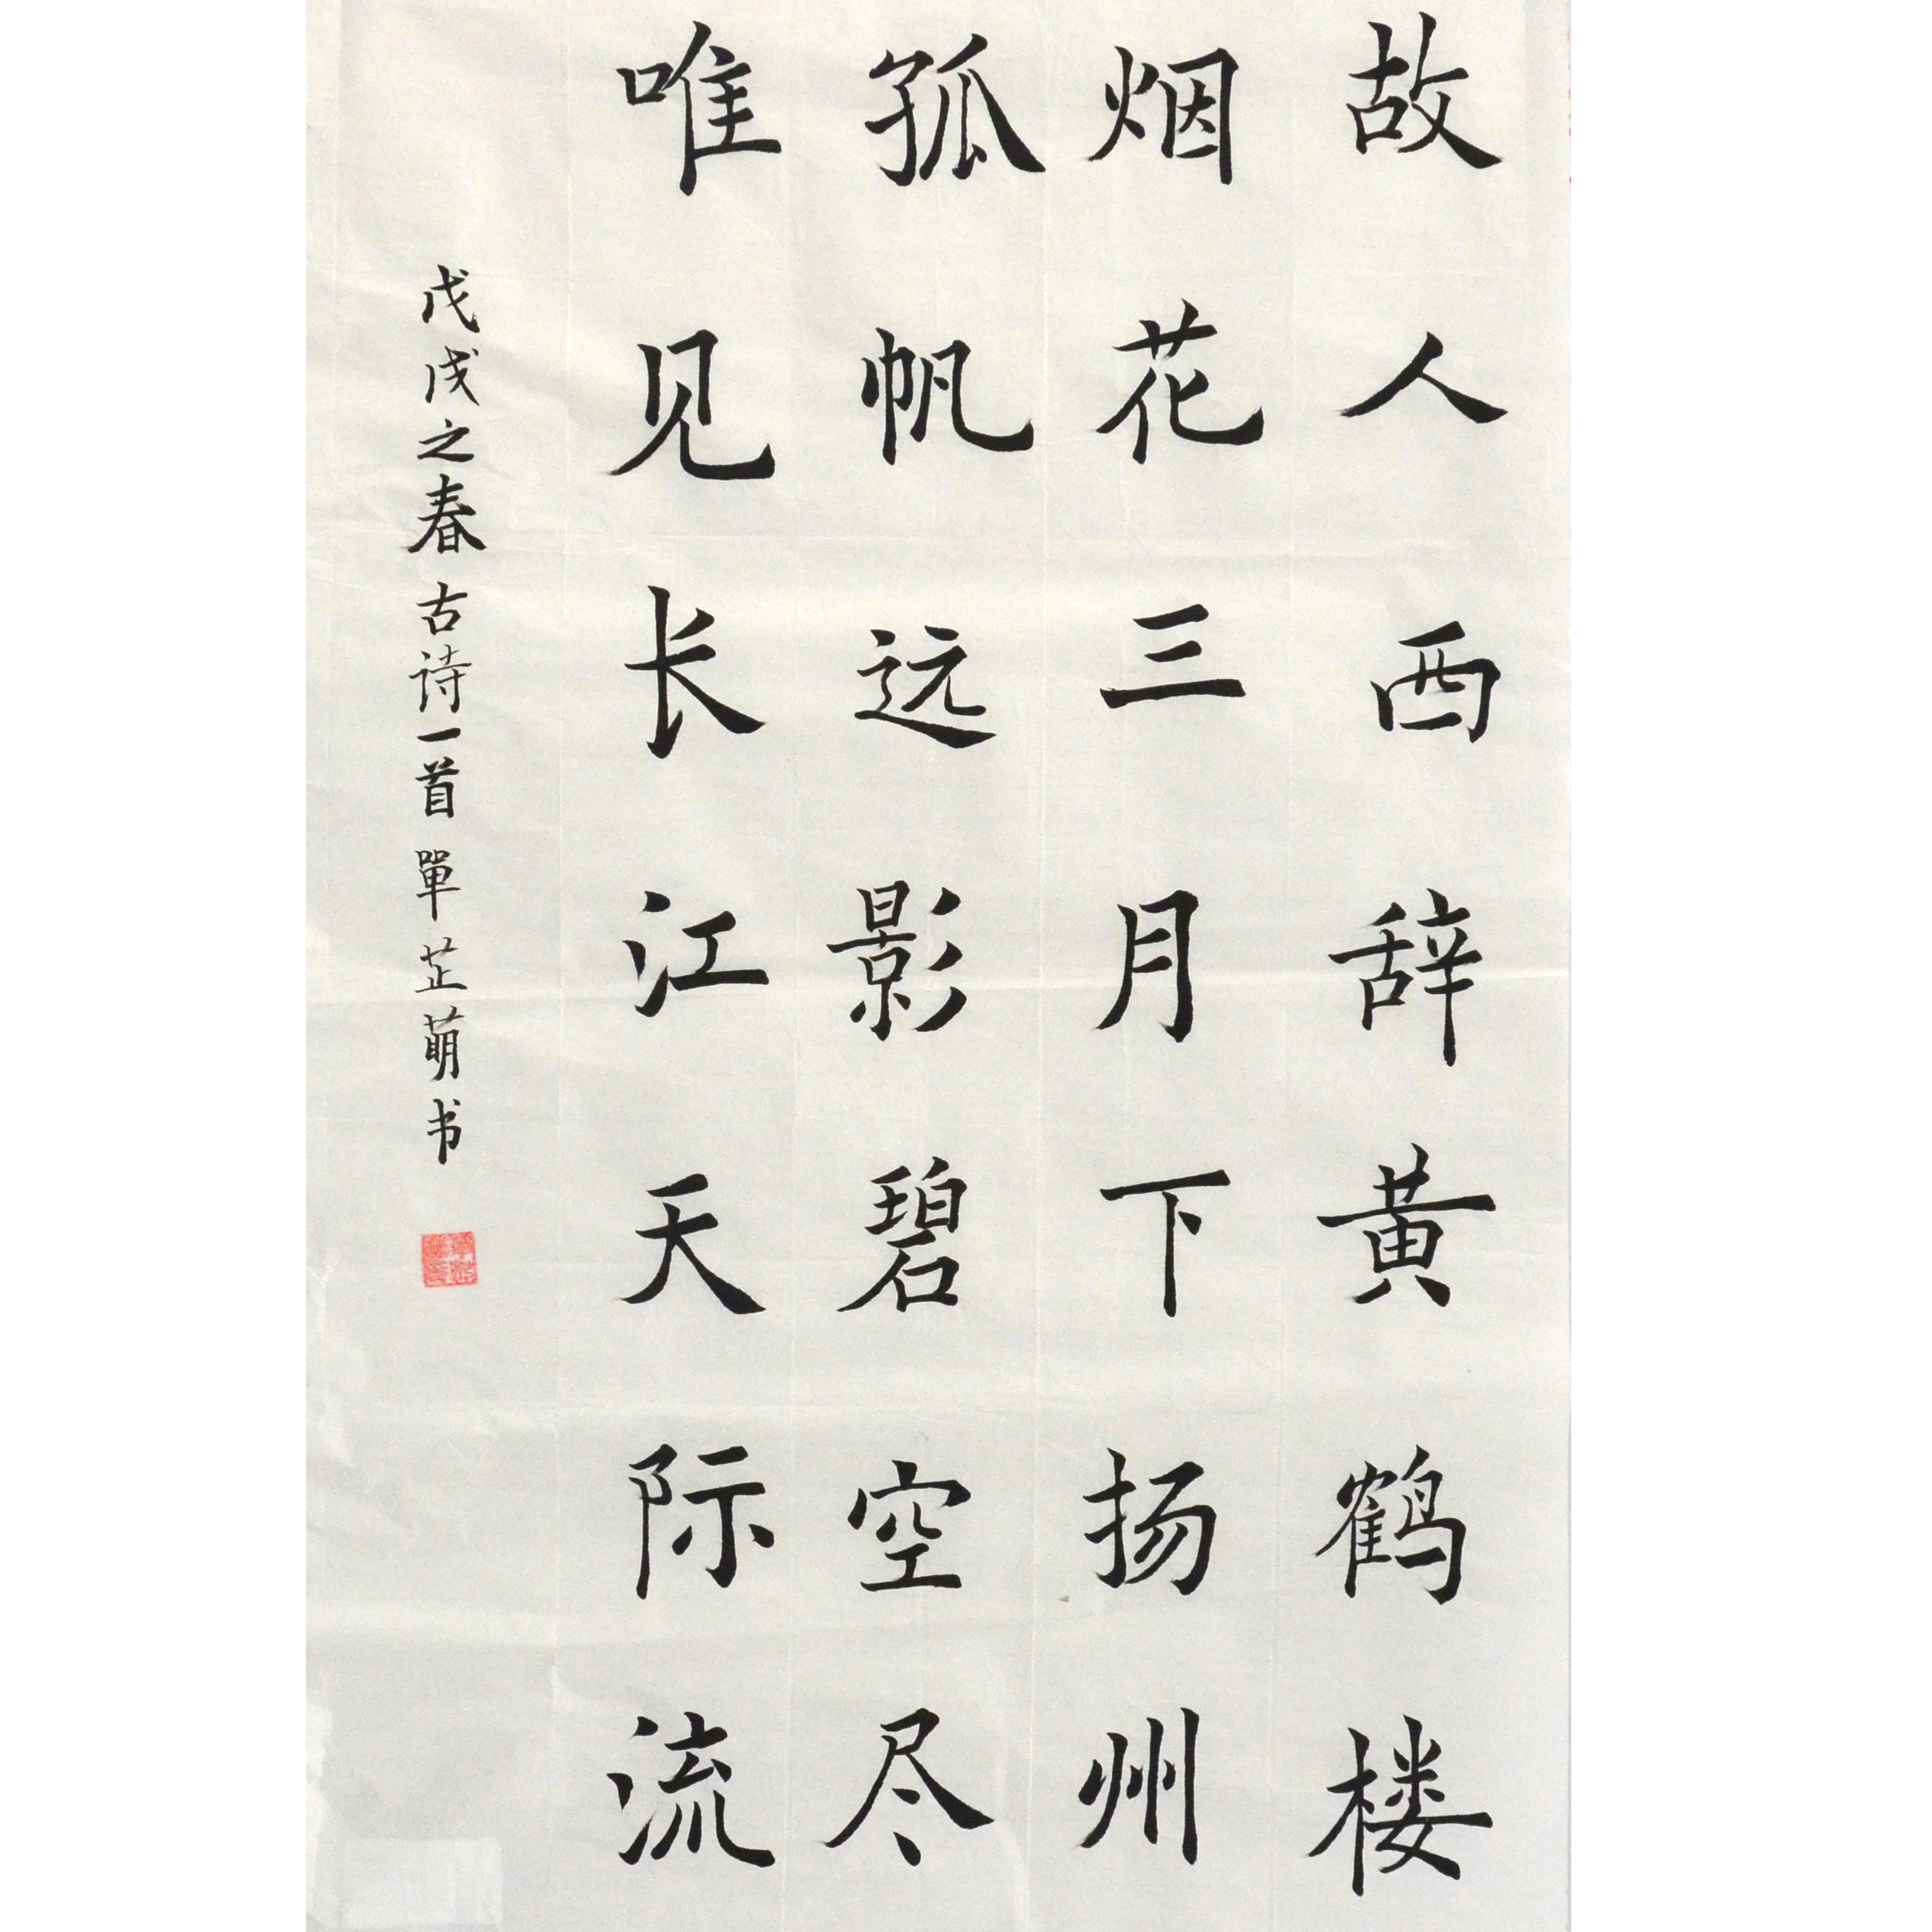 故人西辞黄鹤楼
烟花三月下扬州
孤帆远影碧空尽
唯见长江天际流
戊戌之春古诗一首單芷萌书